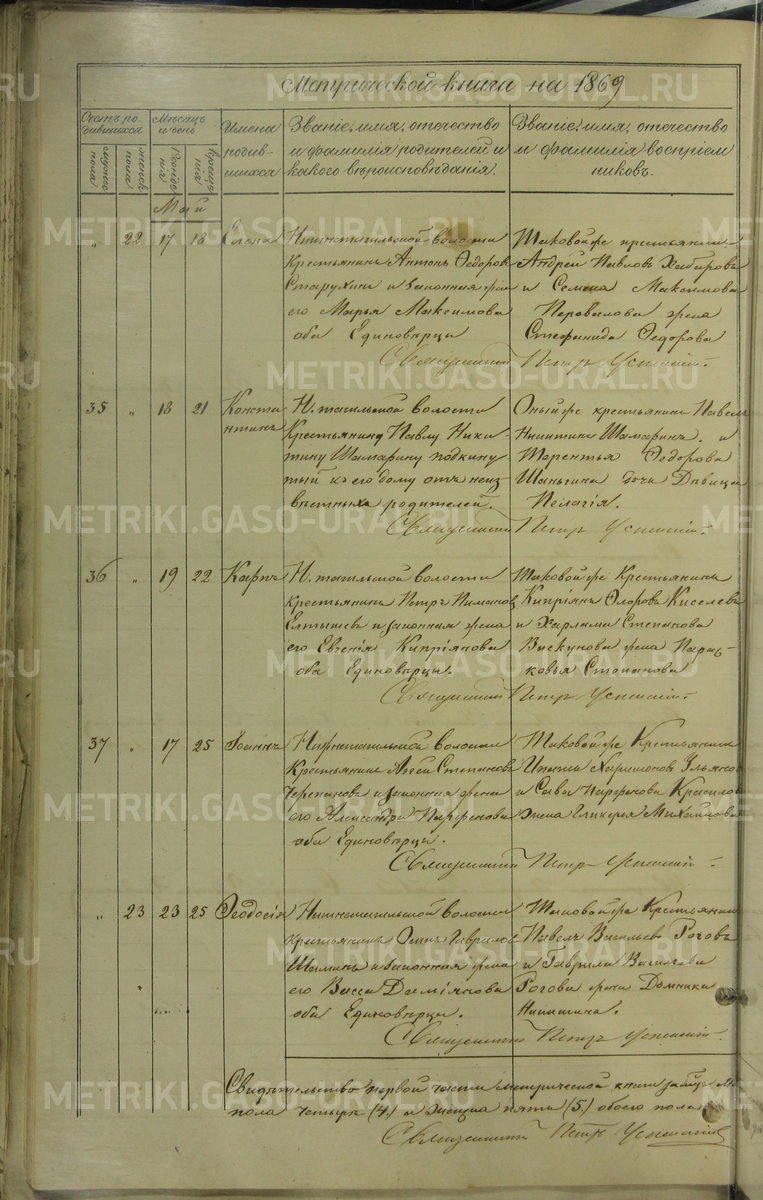 Метрической книги на 1869
Счетъ родившихся
Мѣсяцъ и день
Имена родившихся
Званіе, имя, отечество и фамилія родителей и какого вѣроисповѣданія.
Званіе, имя, отечество и фамилія воспріемниковъ.
Май
„ 22 17 18 Елена
Нижнетагильской волости
Крестьянинъ Антонъ Ѳедоровъ
Старухинъ и законная жена
его Марья Максимова
оба Единовѣрцы
Таковой же крестьянинъ
Андрей Павловъ Хабаровъ
и Семена Максимова
Перевалова жена
Стефанида Ѳедорова
Священникъ Петръ Успенскій.
35 „ 18 21 Константинъ
Н. тагильской волости
Крестьянину Павлу Ники
тину Шамарину подкину
тый къ его дому отъ неиз
вѣстныхъ родителей.
Оный же крестьянинъ Павелъ
Никитинъ Шамаринъ. и
Терентья Ѳедорова
Шаньгина дочь Дѣвица
Пелагія.
Священникъ Петръ Успенскій.
36 „ 19 22 Карпъ
Н. тагильской волости
крестьянинъ Петръ Пимановъ
Елтышевъ и законная жена
его Евгенія Кипріянова
оба Единовѣрцы.
Таковой же Крестьянинъ
Кипріянъ Флоровъ Киселевъ
и Харлама Степанова
Вискунова жена Парас-
ковья Степанова
Священникъ Петръ Успенскій.
37 „ 17 25 Іоаннъ
Нижнетагильской волости
Крестьянинъ Агей Степановъ
Черепановъ и законная жена
его Александра Парфенова
оба Единовѣрцы.
Таковой же Крестьянинъ
Ипатъ Харитоновъ Ульяновъ
и Савы Парфенова Красилова
жена Гликерья Михайлова
Священникъ Петръ Успенскій.
„ 23 23 25 Ѳеодосія
Нижнетагильской волости
крестьянинъ Осипъ Гавриловъ
Шаминъ и законная жена
его Васса Даміянова
оба Единовѣрцы.
Таковой же Крестьянинъ
Павелъ Васильевъ Роговъ
и Гаврила Васильева
Рогова жена Домника
Никитина.
Священникъ Петръ Успенскій.
Свидѣтельство первой части метрической книги за май М.
пола четыре (4.) и женска пять (5.) обоего пола
Священникъ Петръ Успенскій
METRIKI.GASO-URAL.RU